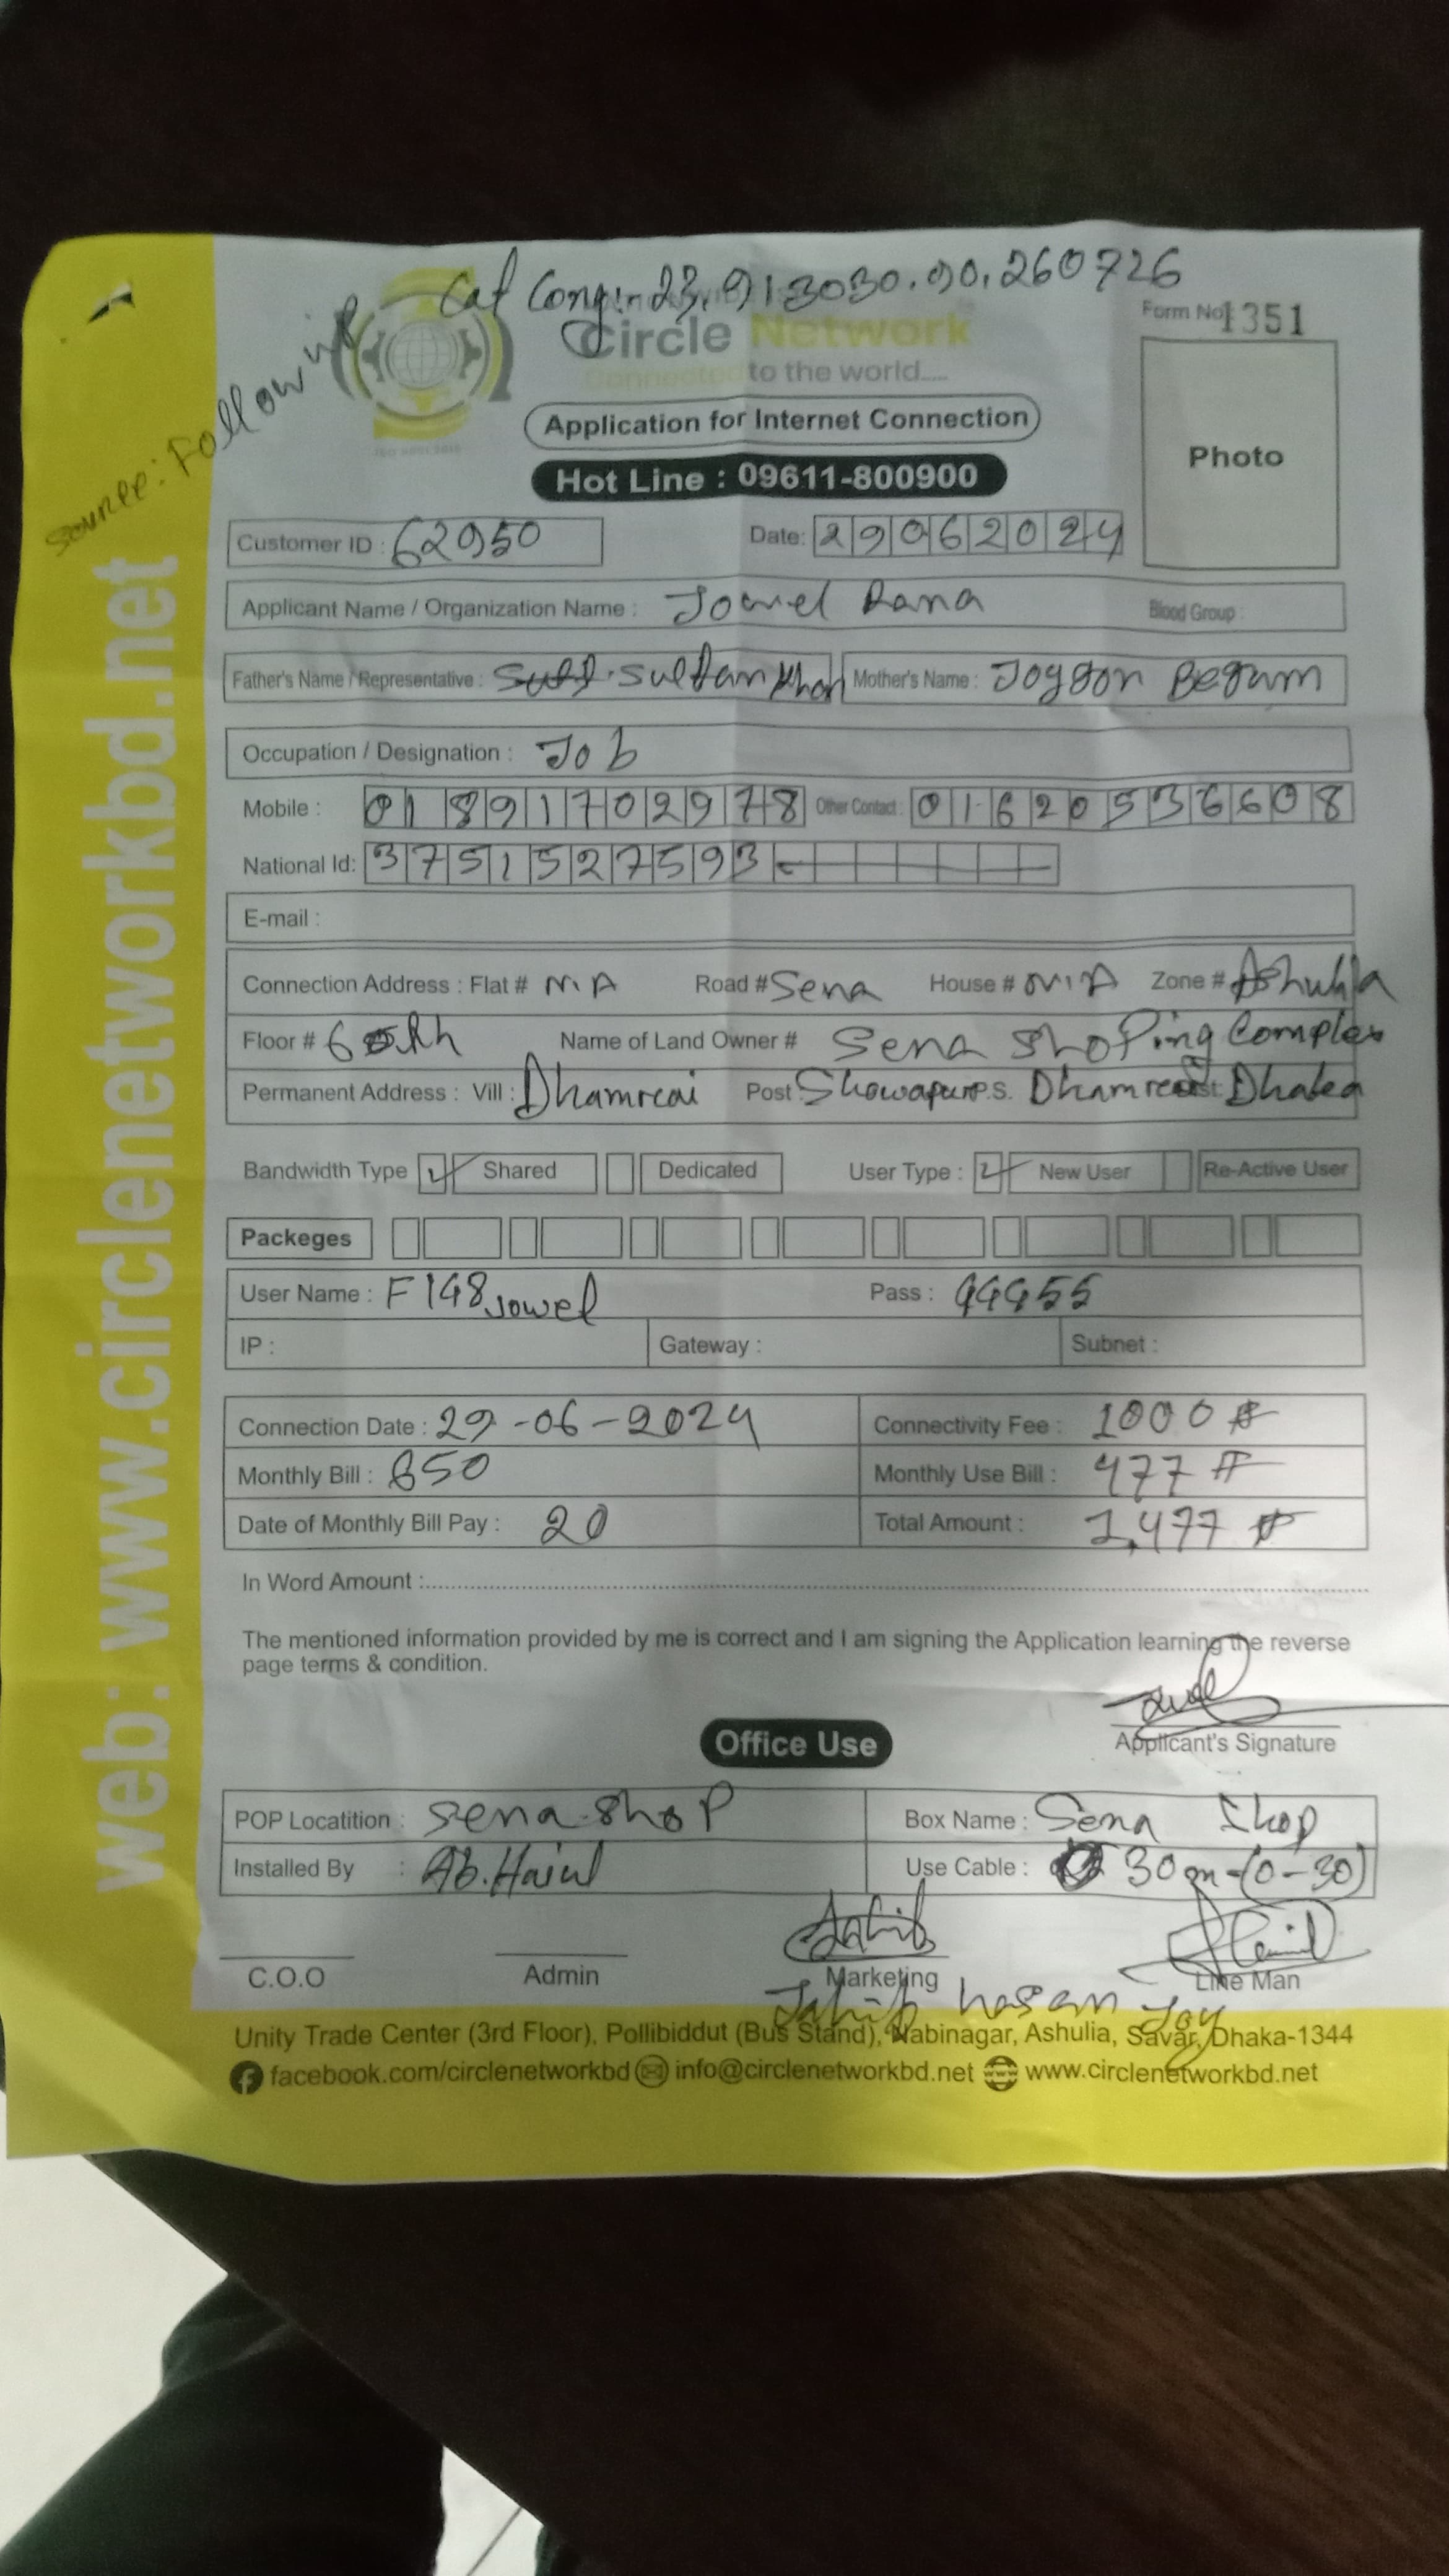 Cat Long:- 23.913030.90.260726
Source: Follow up
Circle Network
Connected to the world....
Form No: 1351
Application for Internet Connection
Photo
Hot Line : 09611-800900
Customer ID : 62950 Date: 29062024
Applicant Name / Organization Name : Jowel Rana Blood Group :
Father's Name / Representative : Sultan Khan Mother's Name : Joygon Begum
Occupation / Designation : Job
Mobile : 01891702978 Other Contact : 01620536608
National Id: 3751527593
E-mail :
Connection Address : Flat # N.A Road # Sena House # N.A Zone # Ashulia
Floor # 6th Name of Land Owner # Sena Shoping Complex
Permanent Address : Vill : Dhamrai Post : Showapur P.S. Dhamrai Dist. Dhaka
Bandwidth Type Shared Dedicated User Type : New User Re-Active User
Packeges
User Name : F148jowel Pass : 44455
IP : Gateway : Subnet :
Connection Date : 29-06-2024 Connectivity Fee : 1000
Monthly Bill : 650 Monthly Use Bill : 477
Date of Monthly Bill Pay : 20 Total Amount : 1,477
In Word Amount :
The mentioned information provided by me is correct and I am signing the Application learning the reverse
page terms & condition.
Jowel
Applicant's Signature
Office Use
POP Locatition : Sena Shop Box Name : Sena Shop
Installed By : Use Cable : 30m-(0-30)
C.O.O Admin Marketing Line Man
hasan Joy
Unity Trade Center (3rd Floor), Pollibiddut (Bus Stand), Nabinagar, Ashulia, Savar, Dhaka-1344
facebook.com/circlenetworkbd info@circlenetworkbd.net www.circlenetworkbd.net
web: www.circlenetworkbd.net